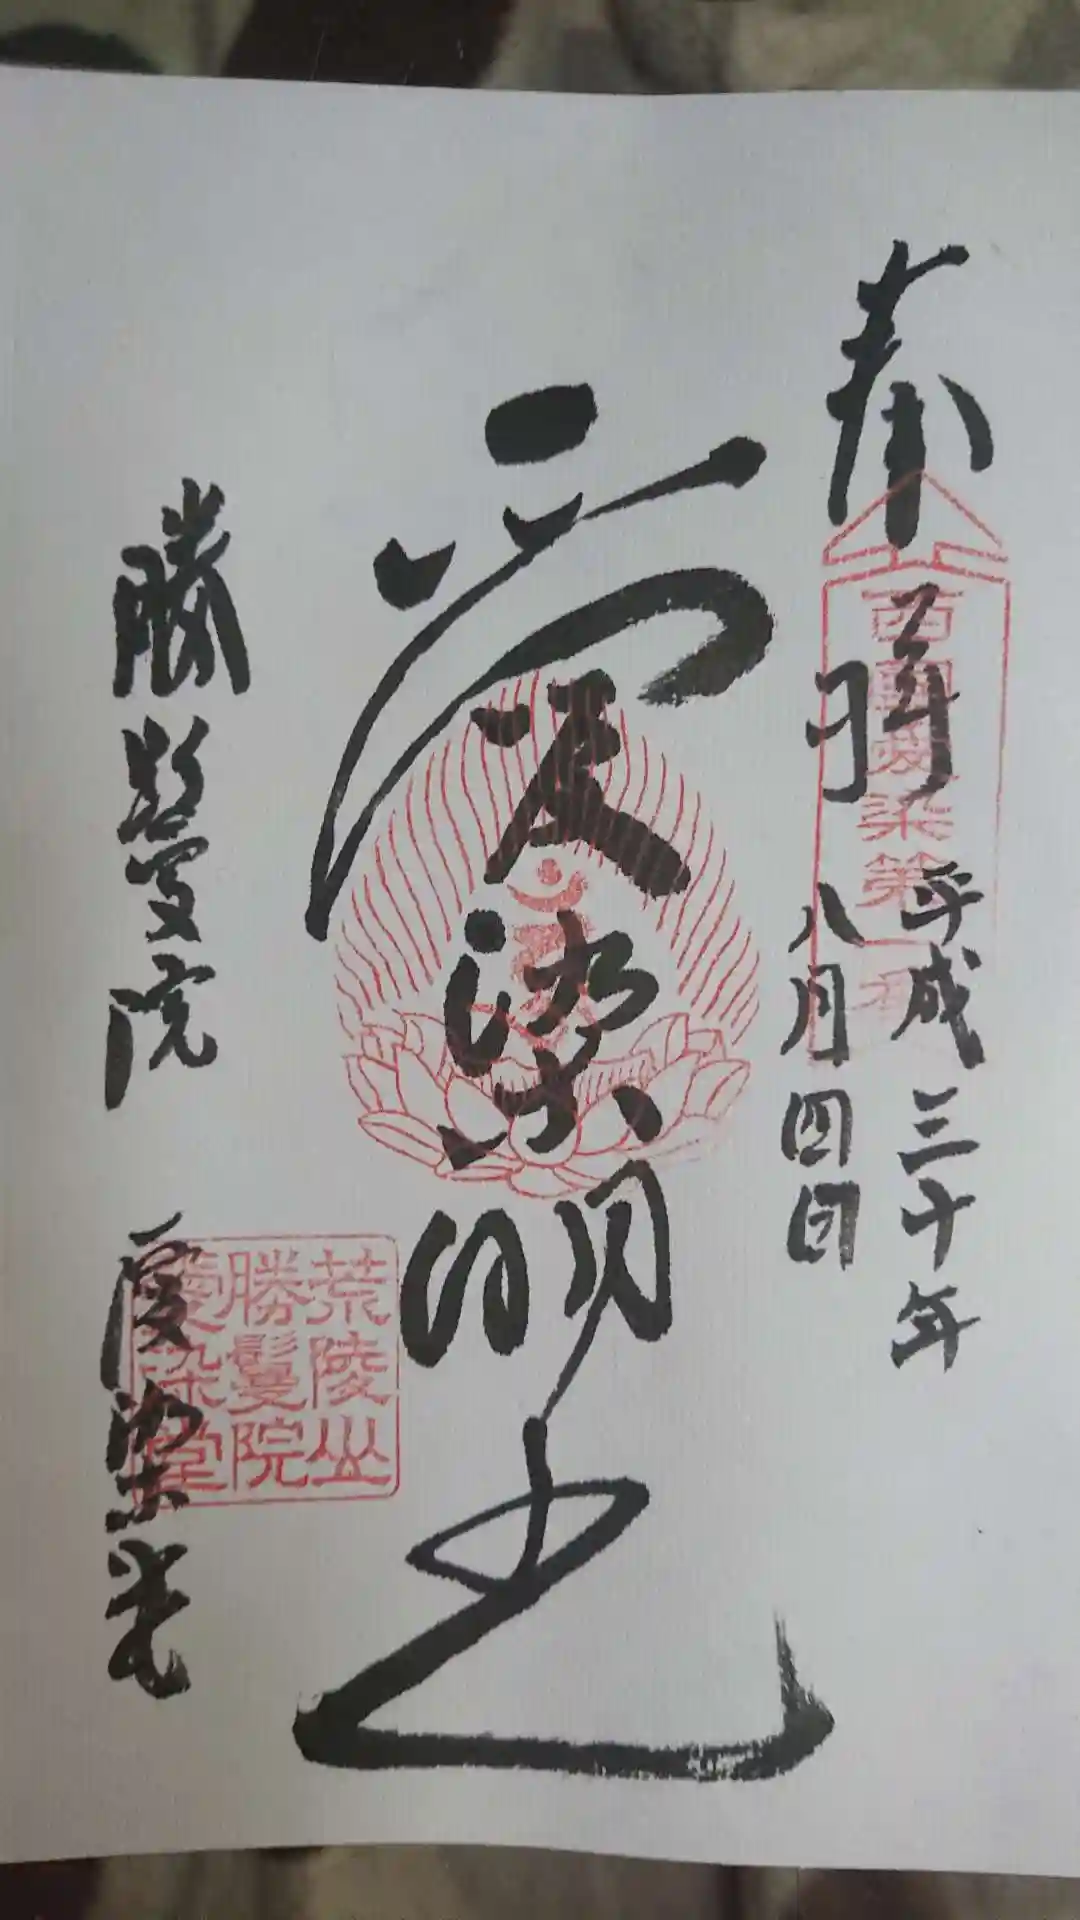 奉拝
西國愛染第一番
平成三十年
八月四日
愛染明王
荒陵山
勝鬘院
愛染堂
勝鬘院 愛染堂